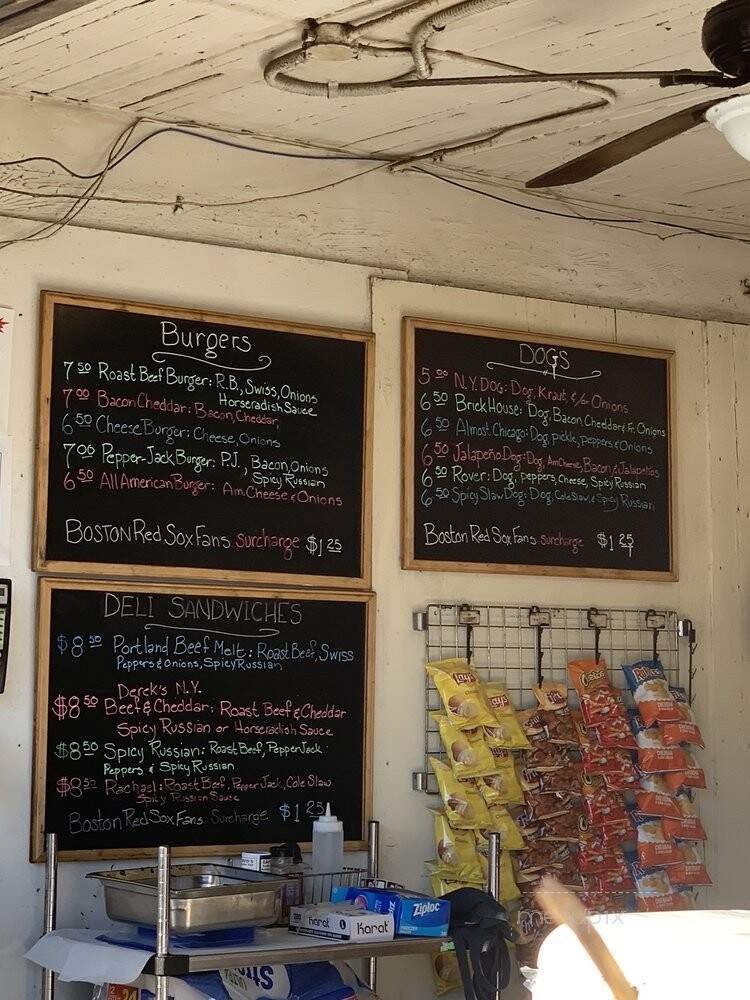 Burgers
7 50 Roast Beef Burger: R.B., Swiss, Onions
Horseradish Sauce
7 00 Bacon Cheddar: Bacon, Cheddar,
6 50 Cheese Burger: Cheese, Onions
7 00 Pepper-Jack Burger: P.J., Bacon, Onions
Spicy Russian
6 50 All American Burger: Am. Cheese & Onions
BOSTON Red Sox Fans surcharge $1 25
DOGS
5 00 N.Y. Dog: Dog, Kraut, &/or Onions
6 50 Brick House: Dog, Bacon Cheddar & Fr. Onions
6 50 Almost Chicago: Dog, pickle, peppers & Onions
6 50 Jalapeño Dog: Dog, Am Cheese, Bacon & Jalapeños
6 50 Rover: Dog, peppers, cheese, Spicy Russian
6 50 Spicy Slaw Dog: Dog, Cole Slaw, & Spicy Russian
Boston Red Sox Fans surcharge $1 25
DELI SANDWICHES
$8 50 Portland Beef Melt: Roast Beef, Swiss
Peppers & Onions, Spicy Russian
Derek's N.Y.
$8 50 Beef & Cheddar: Roast Beef & Cheddar
Spicy Russian or Horseradish Sauce
$8 50 Spicy Russian: Roast Beef, Pepper Jack
Peppers & Spicy Russian
$8 50 Rachael: Roast Beef, Pepper Jack, Cole Slaw
Spicy Russian Sauce
Boston Red Sox Fans Surcharge $1 25
Lay's
Lay's
Cheetos
Ruffles
Karat
Karat
Ziploc